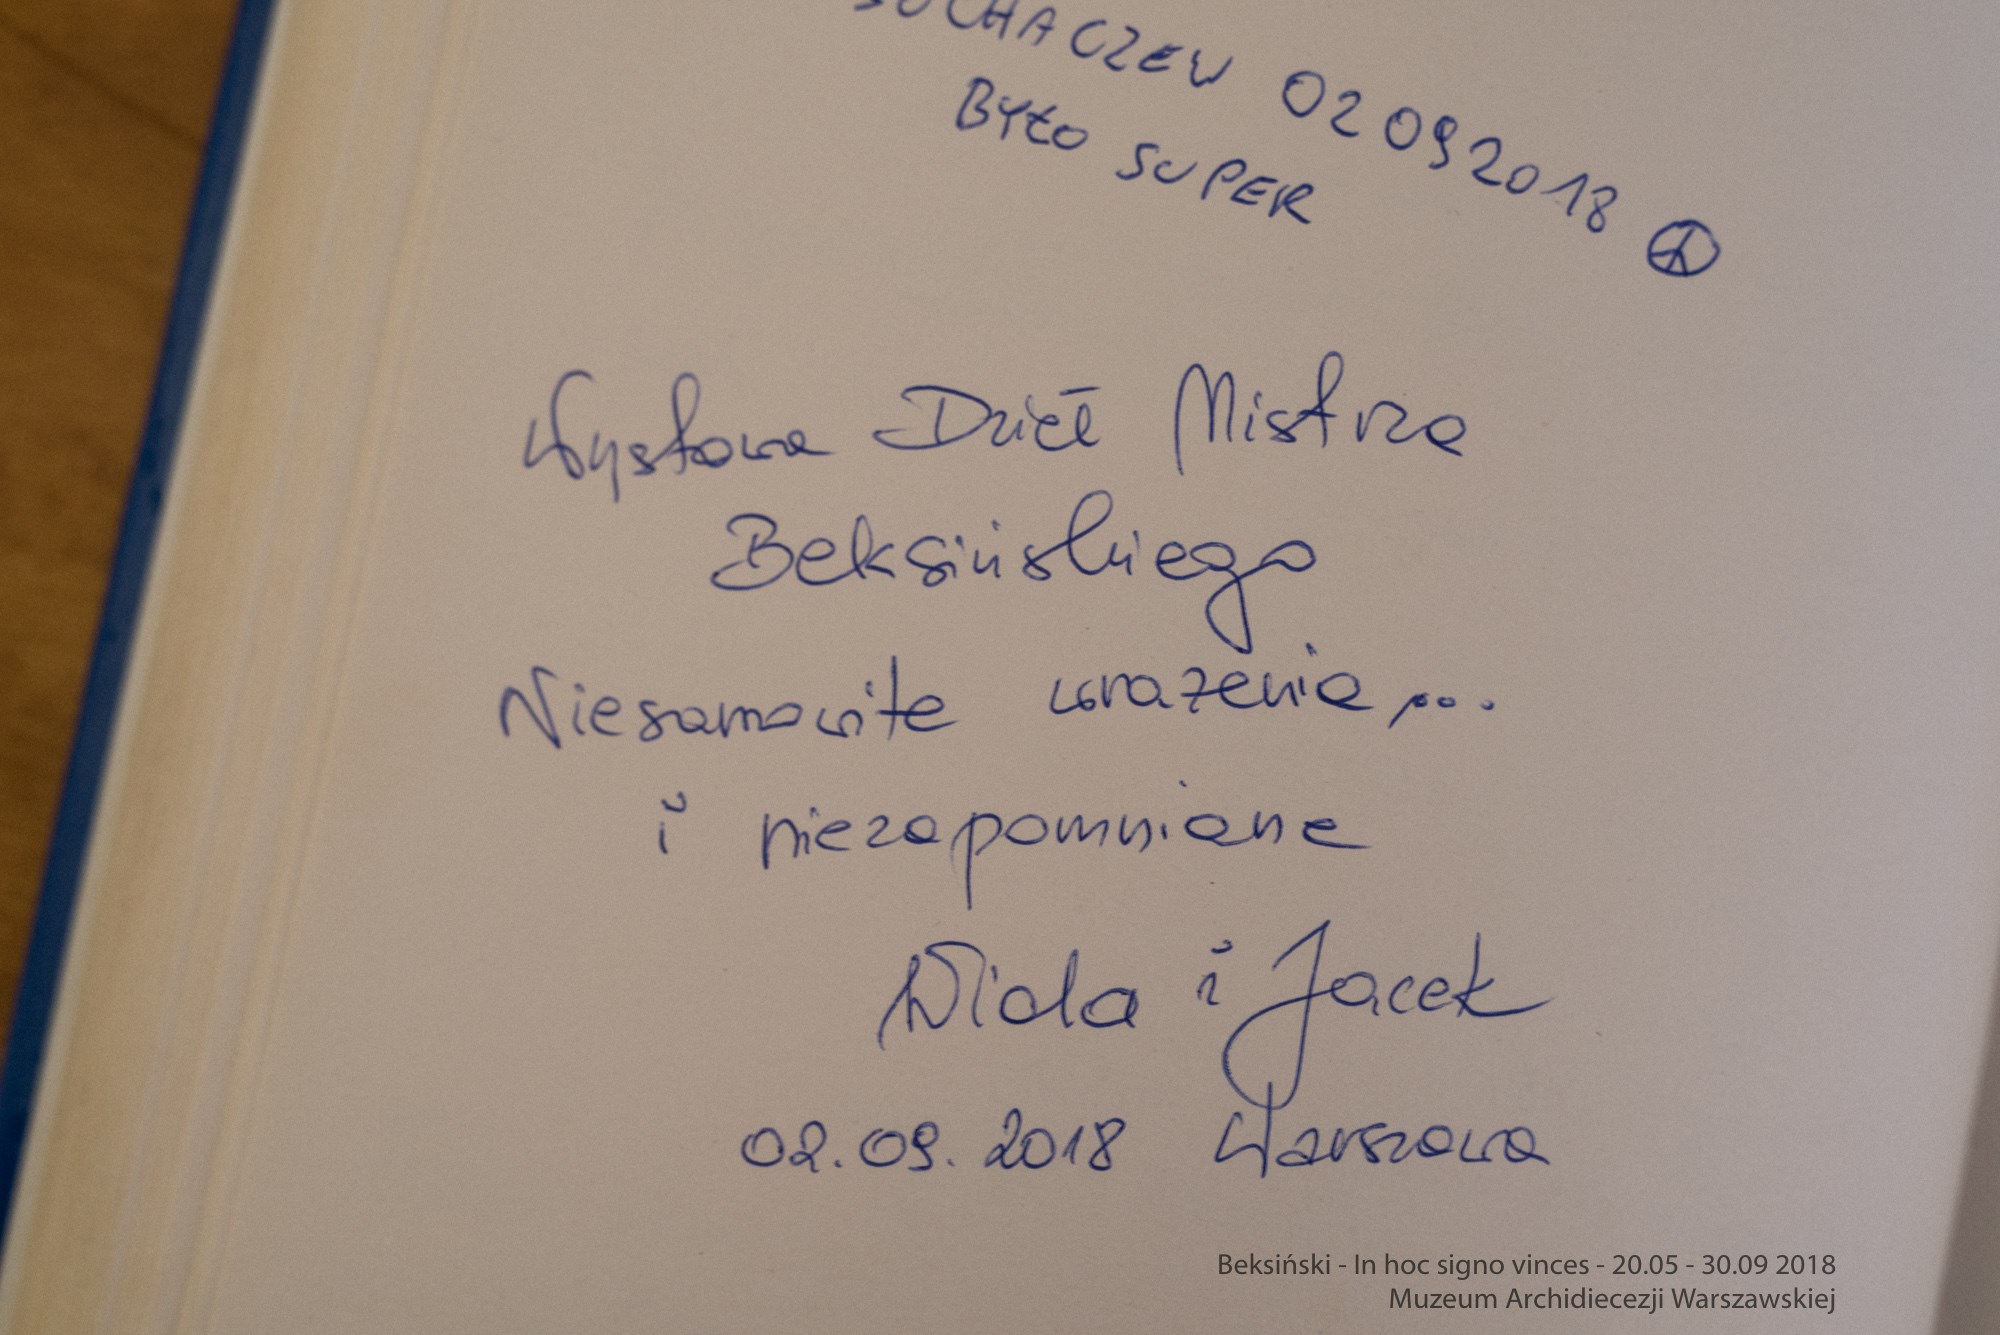 SOCHACZEW 02 09 2018
BYŁO SUPER
Wystawa Dzieł Mistrza
Beksińskiego
Niesamowite wrażenia...
i niezapomniane
Wiola i Jacek
02.09.2018 Warszawa
Beksiński - In hoc signo vinces - 20.05 - 30.09 2018
Muzeum Archidiecezji Warszawskiej